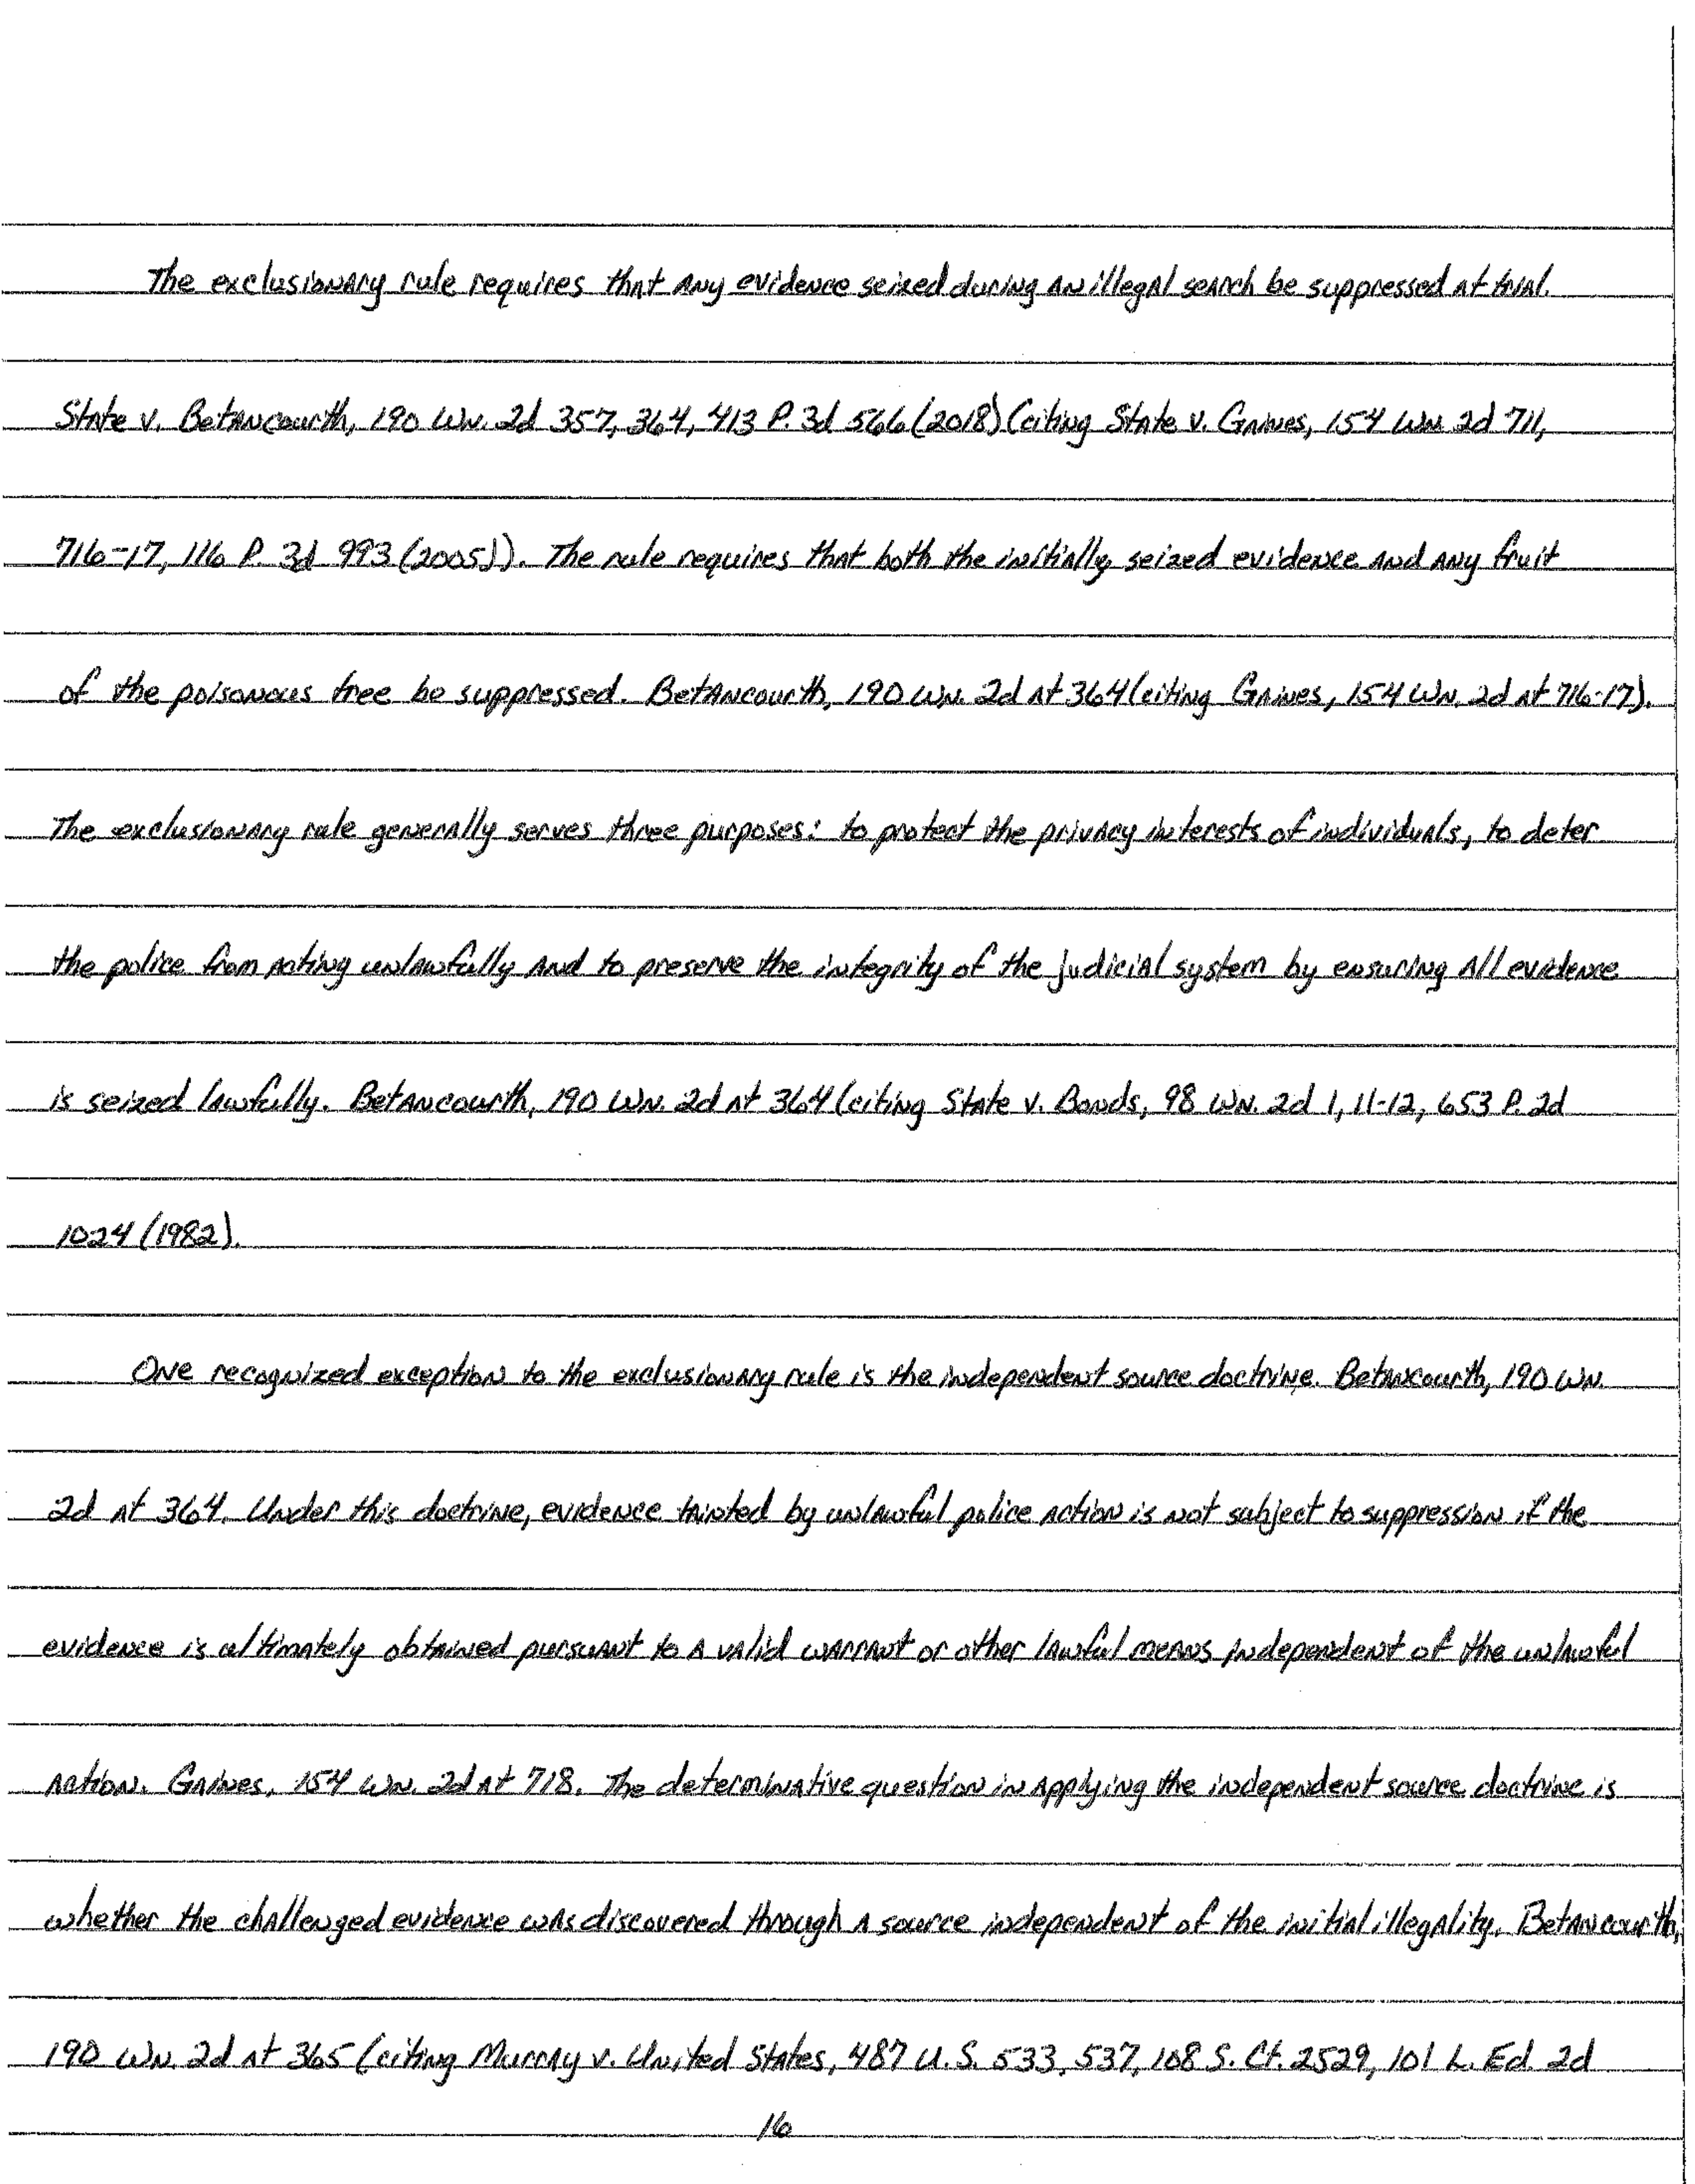 The exclusionary rule requires that any evidence seized during an illegal search be suppressed at trial.
State v. Betancourth, 190 Wn. 2d 357, 364, 413 P. 3d 566 (2018) (citing State v. Gaines, 154 Wn. 2d 711,
716-17, 116 P. 3d 993 (2005)). The rule requires that both the initially seized evidence and any fruit
of the poisonous tree be suppressed. Betancourth, 190 Wn. 2d at 364 (citing Gaines, 154 Wn. 2d at 716-17).
The exclusionary rule generally serves three purposes: to protect the privacy interests of individuals, to deter
the police from acting unlawfully and to preserve the integrity of the judicial system by ensuring all evidence
is seized lawfully. Betancourth, 190 Wn. 2d at 364 (citing State v. Bonds, 98 Wn. 2d 1, 11-12, 653 P. 2d
1024 (1982).
One recognized exception to the exclusionary rule is the independent source doctrine. Betancourth, 190 Wn.
2d at 364. Under this doctrine, evidence tainted by unlawful police action is not subject to suppression if the
evidence is ultimately obtained pursuant to a valid warrant or other lawful means independent of the unlawful
action. Gaines, 154 Wn. 2d at 718. The determinative question in applying the independent source doctrine is
whether the challenged evidence was discovered through a source independent of the initial illegality. Betancourth,
190 Wn. 2d at 365 (citing Murray v. United States, 487 U.S. 533, 537, 108 S. Ct. 2529, 101 L. Ed. 2d
16